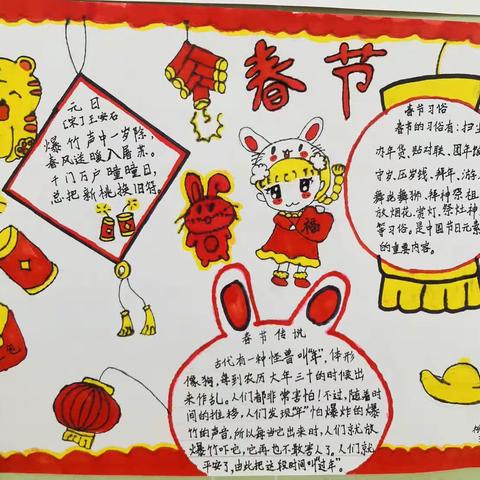 春节
元日
[宋]王安石
爆竹声中一岁除,
春风送暖入屠苏。
千门万户曈曈日,
总把新桃换旧符。
福
春节习俗
春节的习俗有:扫尘
办年货、贴对联、团年饭
守岁、压岁钱、拜年、游
舞龙舞狮、拜神祭祖
放烟花、赏灯、祭灶神
等习俗。是中国节日元素
的重要内容。
春节传说
古代有一种怪兽叫"年",体形
像狗,每到农历大年三十的时候出
来作乱。人们都非常害怕!不过,随着时
间的推移,人们发现"年"怕爆炸的爆
竹的声音,所以每当它出来时,人们就放
爆竹吓它,它再也不敢害人了。人们就
平安了,由此把这段时间叫"过年"。